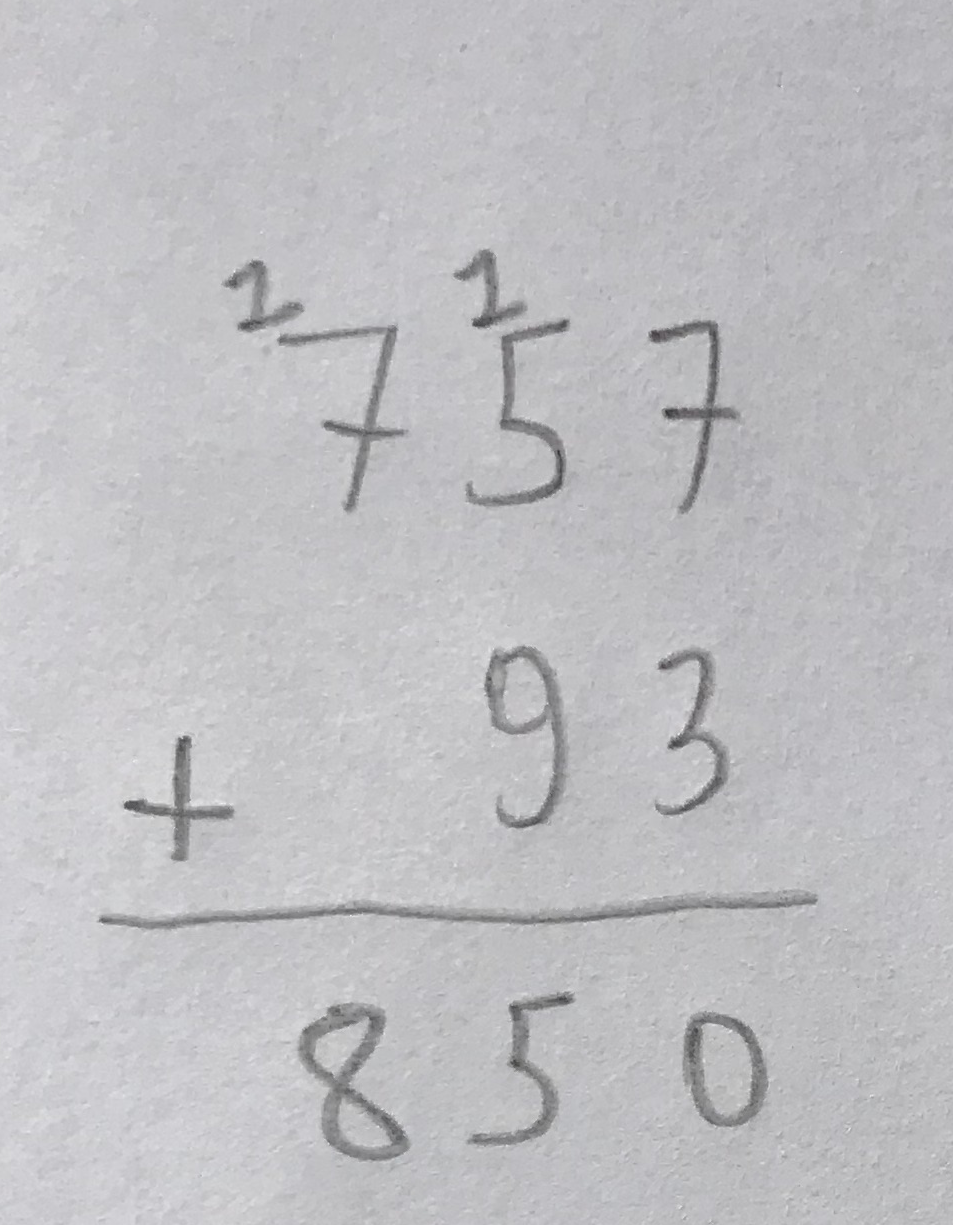 1 1
757
+ 93
850